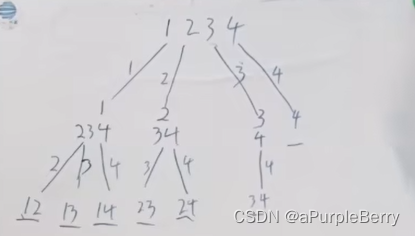 1 2 3 4
1 2 3 4
1 2 3 4
234 34 4 —
2 3 4 3 4 4
12 13 14 23 24 34
CSDN @aPurpleBerry